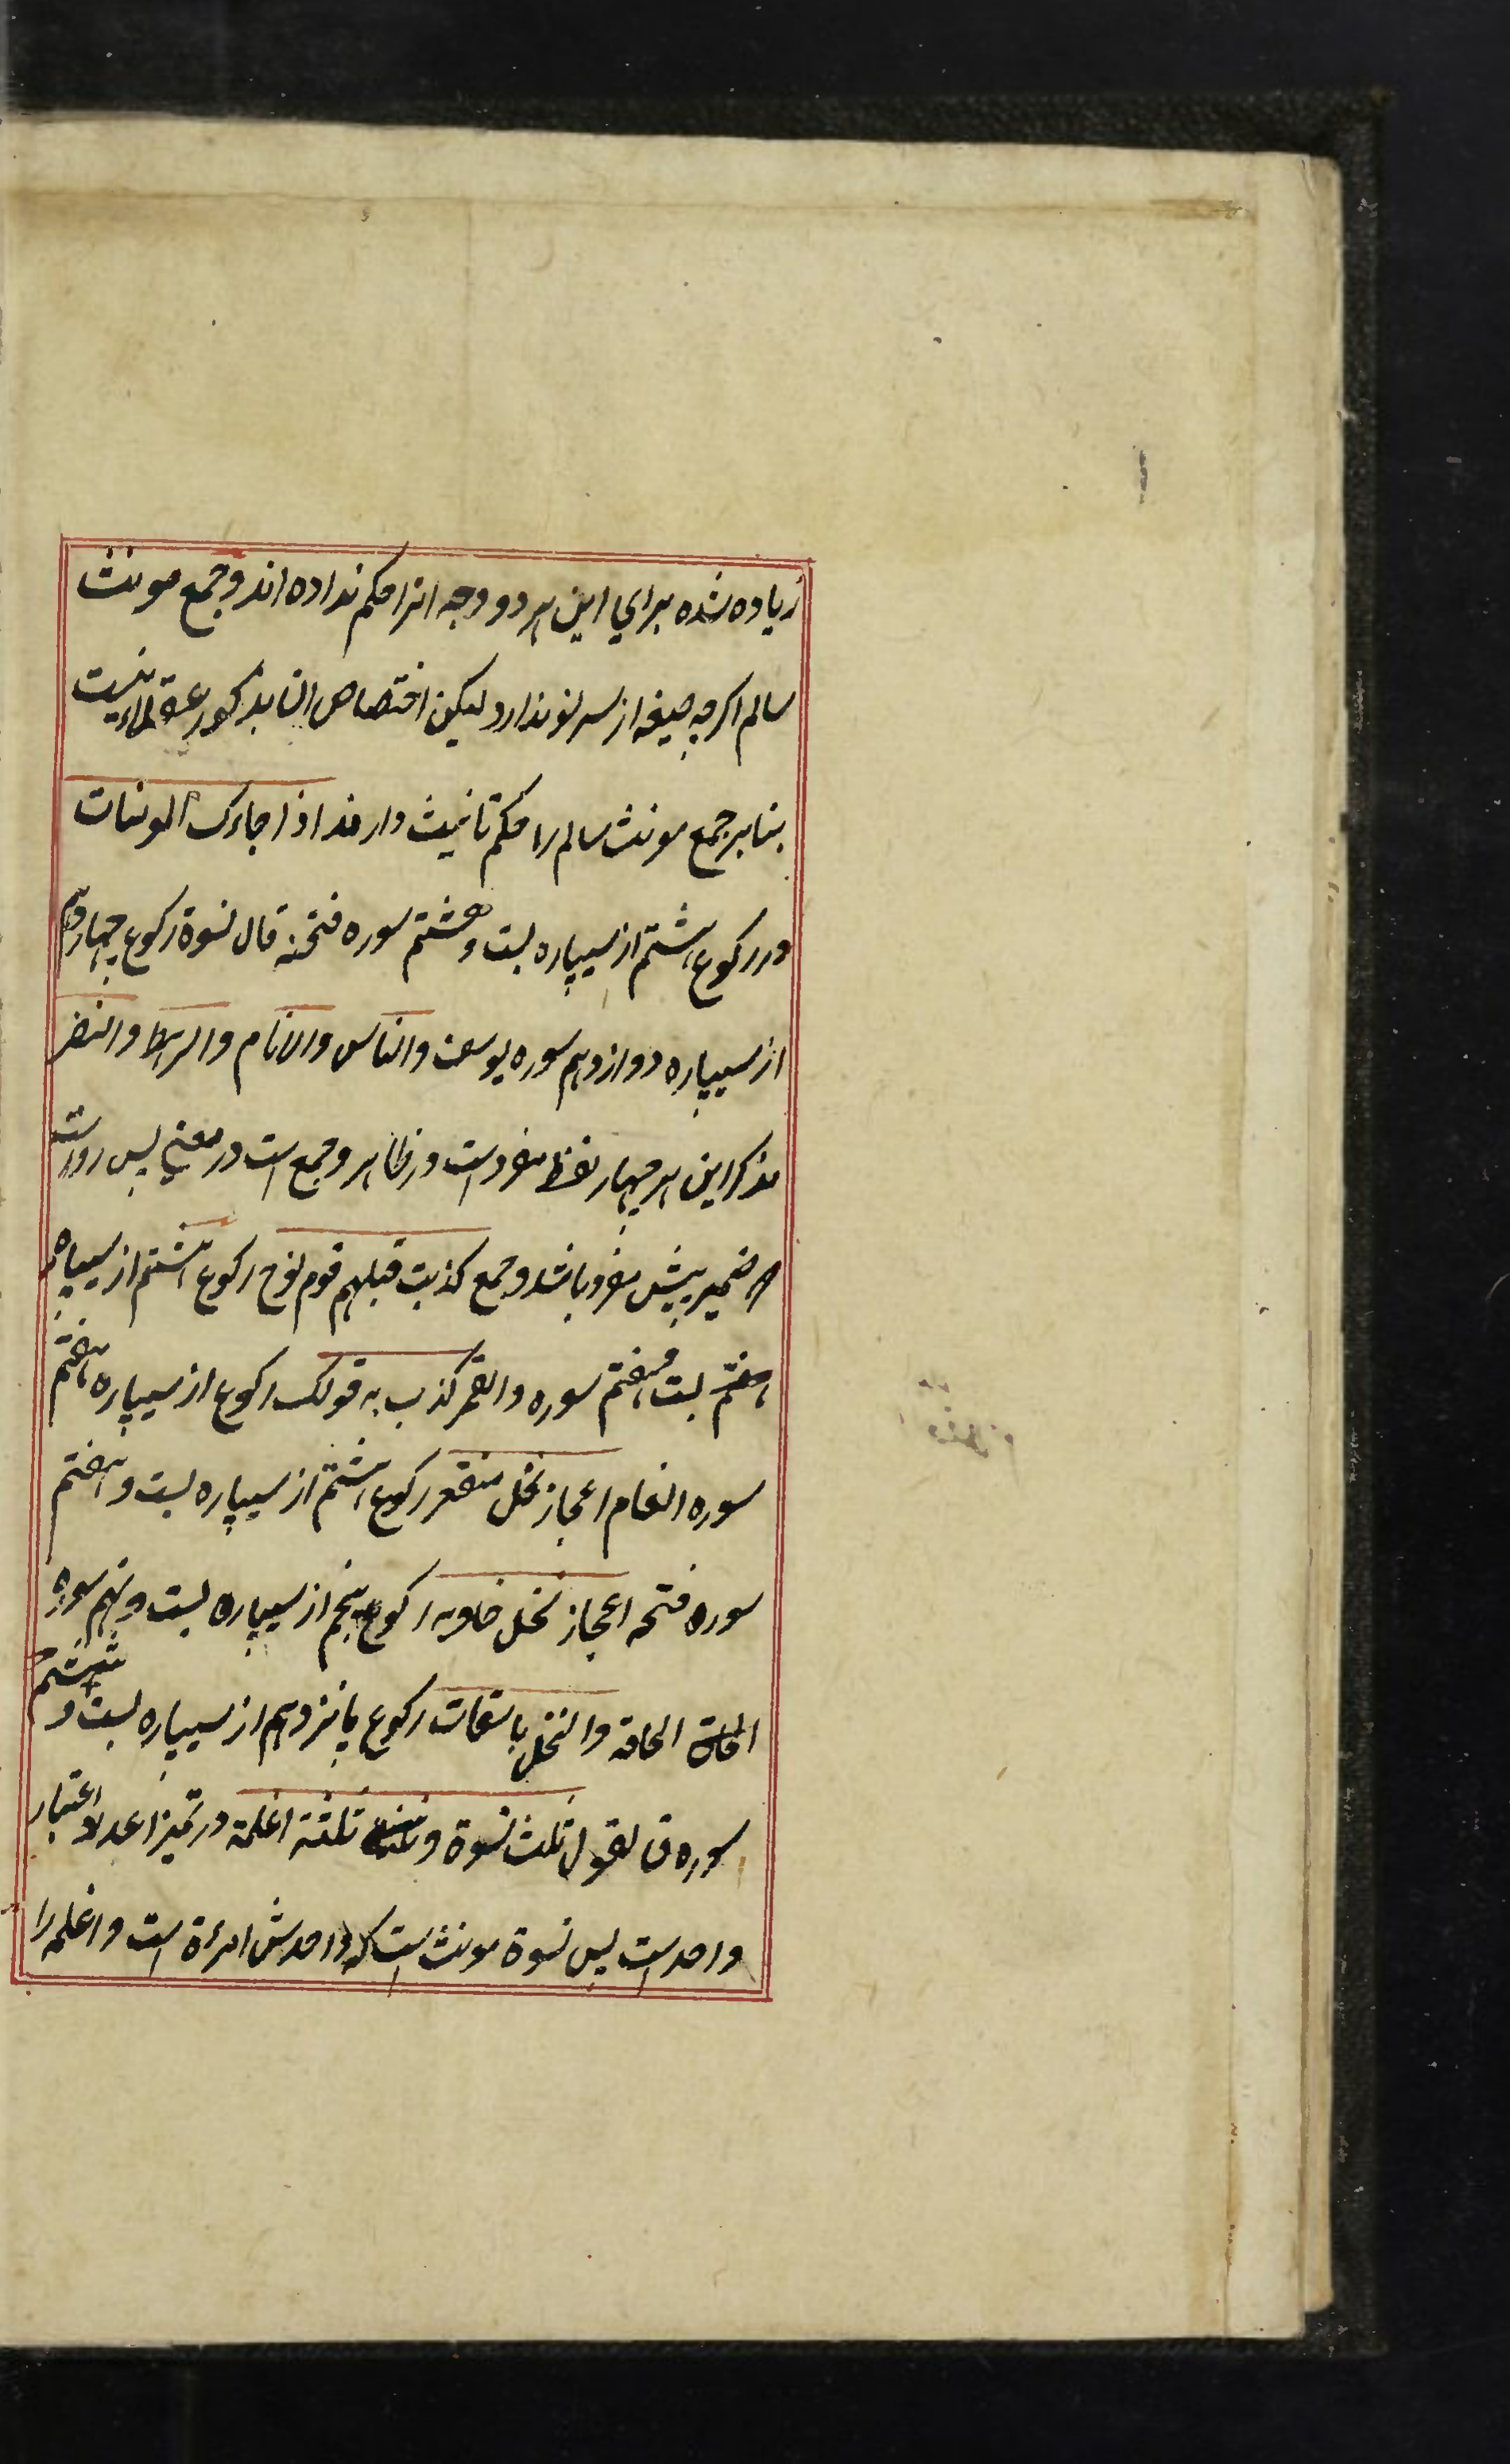 زیاده شده برای این هر دو وجه انرا حکم نداده اند و جمع مونث
سالم اگرچه صیغه از سر نو ندارد لیکن اختصاص انها بذکور عقلاء نیست
بنا بر جمع مونث سالم را حکم تانیث دارند اذا جاءک المومنات
در رکوع هشتم از سیپاره بست و هشتم سوره ممتحنه قال نسوة رکوع چهاردهم
از سیپاره دوازدهم سوره یوسف والناس والانام والرهط والنفر
مذکر این هر چهار لفظ مفرد است در ظاهر و جمع است در معنی پس رواست
که ضمیر پیش مفرد باشد و جمع کذبت قبلهم قوم نوح رکوع هشتم از سیپاره
هفتم بست و هفتم سوره والقمر کذب به قومک رکوع از سیپاره هفتم
سوره انعام اعجاز نخل منقعر رکوع هشتم از سیپاره بست و هفتم
سوره اعجاز نخل خاویه رکوع پنجم از سیپاره بست و نهم سوره
الحاقة الحاقه والنخل باسقات رکوع پانزدهم از سیپاره بست و ششم
سوره ق تقول ثلث نسوة و ثلثة اغلمة در تمیز اعداد اعتبار
واحد است پس نسوة مونث است که واحدش امرءة است و اغلمه را